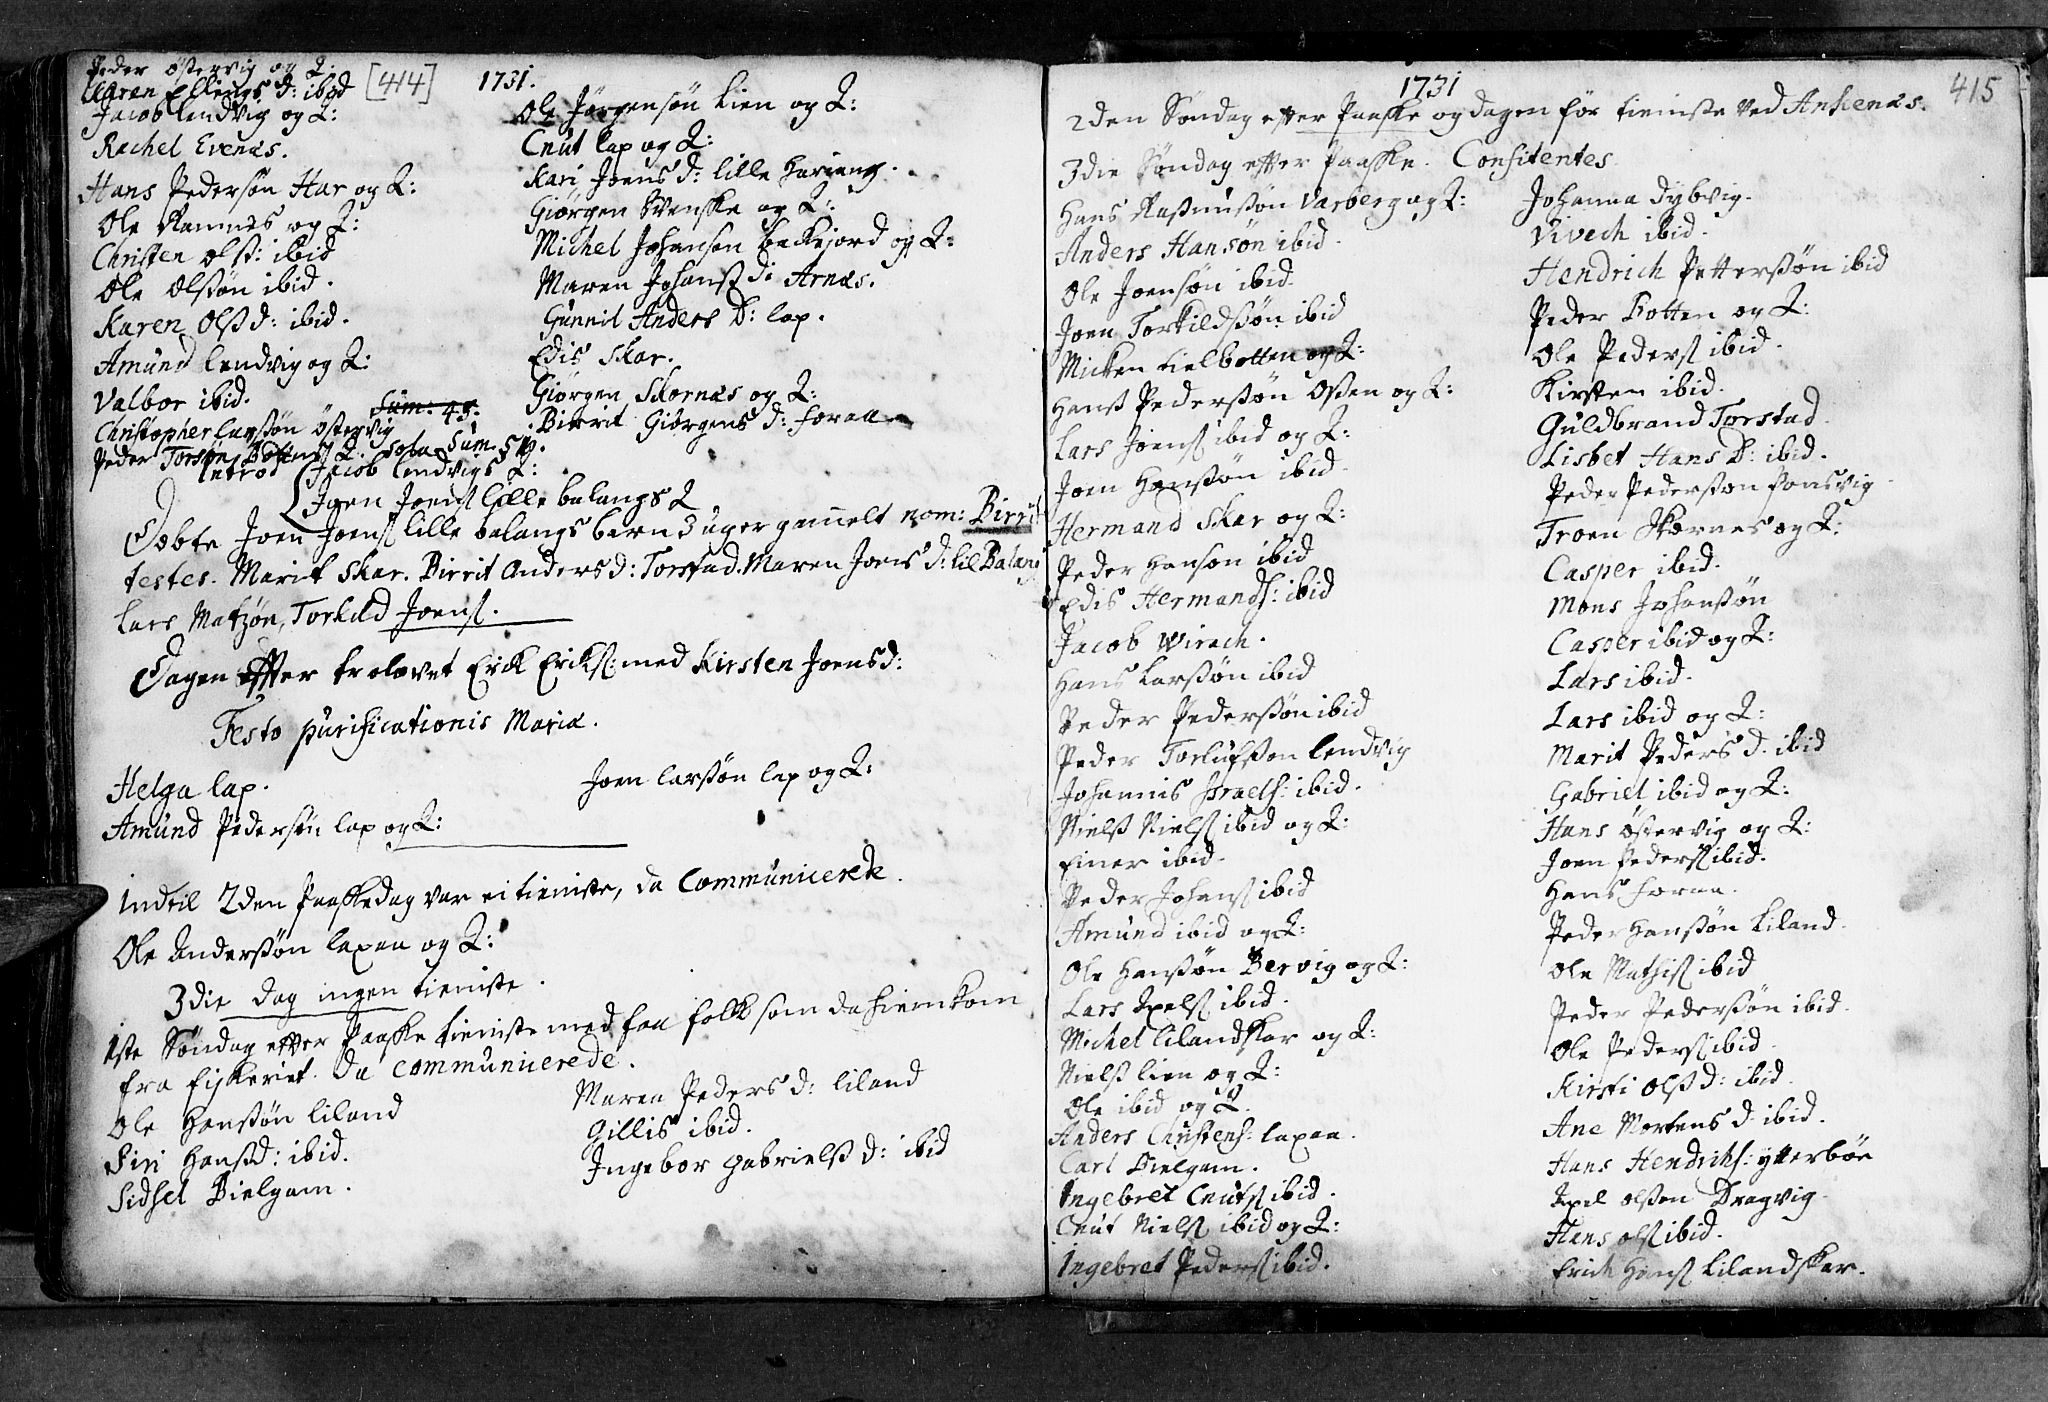 [414] 1731.
Peder Östervig og Q:
Karen Ellings D: ibid
Jacob lendvig og Q:
Rachel Evenæs.
Hans Pedersön Har og Q:
Ole Ramnes og Q:
Christen Olß: ibid
Ole Olßön ibid.
Karen Olß D: ibid.
Amund lendvig og Q:
Valbor ibid.
Christopher Larßön Östervig
Peder Torsön
Ole Jörgensön Lien og Q:
Cnut lap og Q:
Kari Joens D: lille Harieng.
Giörgen Svenske og Q:
Michel Johanson Beckejord og Q:
Maren Johanß D: Arnæs.
Gunnil Anders D: lap.
Edis Skar.
Giörgen Skornæs og Q:
Birrit Giörgens D: foraa
Sum: 45.
Sum.
Introd { Jacob lendvigs Q:
Joen Joenß lille balangs Q
Döbte Joen Joenß lille balangs barn 3 uger gamelt nom: Birrit
testes. Marit Skar. Birrit Anders D: Torstad. Maren Joens D: lil Balang
Lars Matzön, Torkild Joenß.
Dagen effter trolovet Erick Erickß: med Kirsten Joensd:
Festo purificationis Mariæ.
Helga lap.
Amund Pedersön lap og Q:
Joen larßön lap og Q:
Indtil 2den Paaskedag var ei tieniste, da Communicerede.
Ole Anderßön laxaa og Q:
3die dag ingen tieniste.
1ste Söndag effter Paaske tieniste med faa folk som da hiem kom
fra fiskeriet. Da communicerede.
Ole Hanßön liland
Siri Hanßd: ibid.
Sidsel Bielgam.
Maren Peders D: liland
Gillis ibid.
Ingebor Gabrielß D: ibid
1731 415
2den Söndag effter Paaske og dagen för tieniste ved Ankenæs.
3die Söndag effter Paaske. Confitentes.
Hans Raßmußön Varberg og Q:
Anders Hansön ibid.
Ole Joensön ibid.
Joen Torkildßön ibid
Micken Kielbotten og Q:
Hanß Pederßön Osen og Q:
Lars Joenß ibid og Q:
Joen Hanßön ibid.
Hermand Skar og Q:
Peder Hanson ibid
Edis Hermandß: ibid
Jacob Wirach.
Hans Larßön ibid
Peder Pederßön ibid
Peder Torlufßon lendvig
Johannis Israelß: ibid.
Nielß Nielß ibid og Q:
Einer ibid.
Peder Johanß ibid
Amund ibid og Q:
Ole Hanßön Bervig og Q:
Lars Axelß ibid.
Michel Lilandskar og Q:
Nielß lien og Q:
Ole ibid og Q.
Anders Christens: laxaa.
Carl Bielgam.
Ingebret Cnutß ibid.
Cnut Nielß ibid og Q:
Ingebret Pederß ibid.
Johanna Dybvig.
Vivech ibid.
Hendrich Petterßön ibid
Peder Botten og Q:
Ole Pederß ibid.
Kirsten ibid.
Guldbrand Torstad.
Lisbet Hans D: ibid.
Peder Pederßon
Troen Skornes og Q:
Casper ibid.
Mons Johanßön
Casper ibid og Q:
Lars ibid.
Lars ibid og Q:
Marit Peders D: ibid
Gabriel ibid og Q:
Hans Östervig og Q:
Joen Pederß ibid.
Hans foraa.
Peder Hanßön Liland.
Ole Mathisß ibid
Peder Pederßön ibid.
Ole Pederß ibid
Kirsti Olß D: ibid.
Ane Mortens D: ibid.
Hans Hendriks: ytterböe
Axel Olßen Dragvig.
Hans olß ibid.
Erich Hanß Lilandskar.